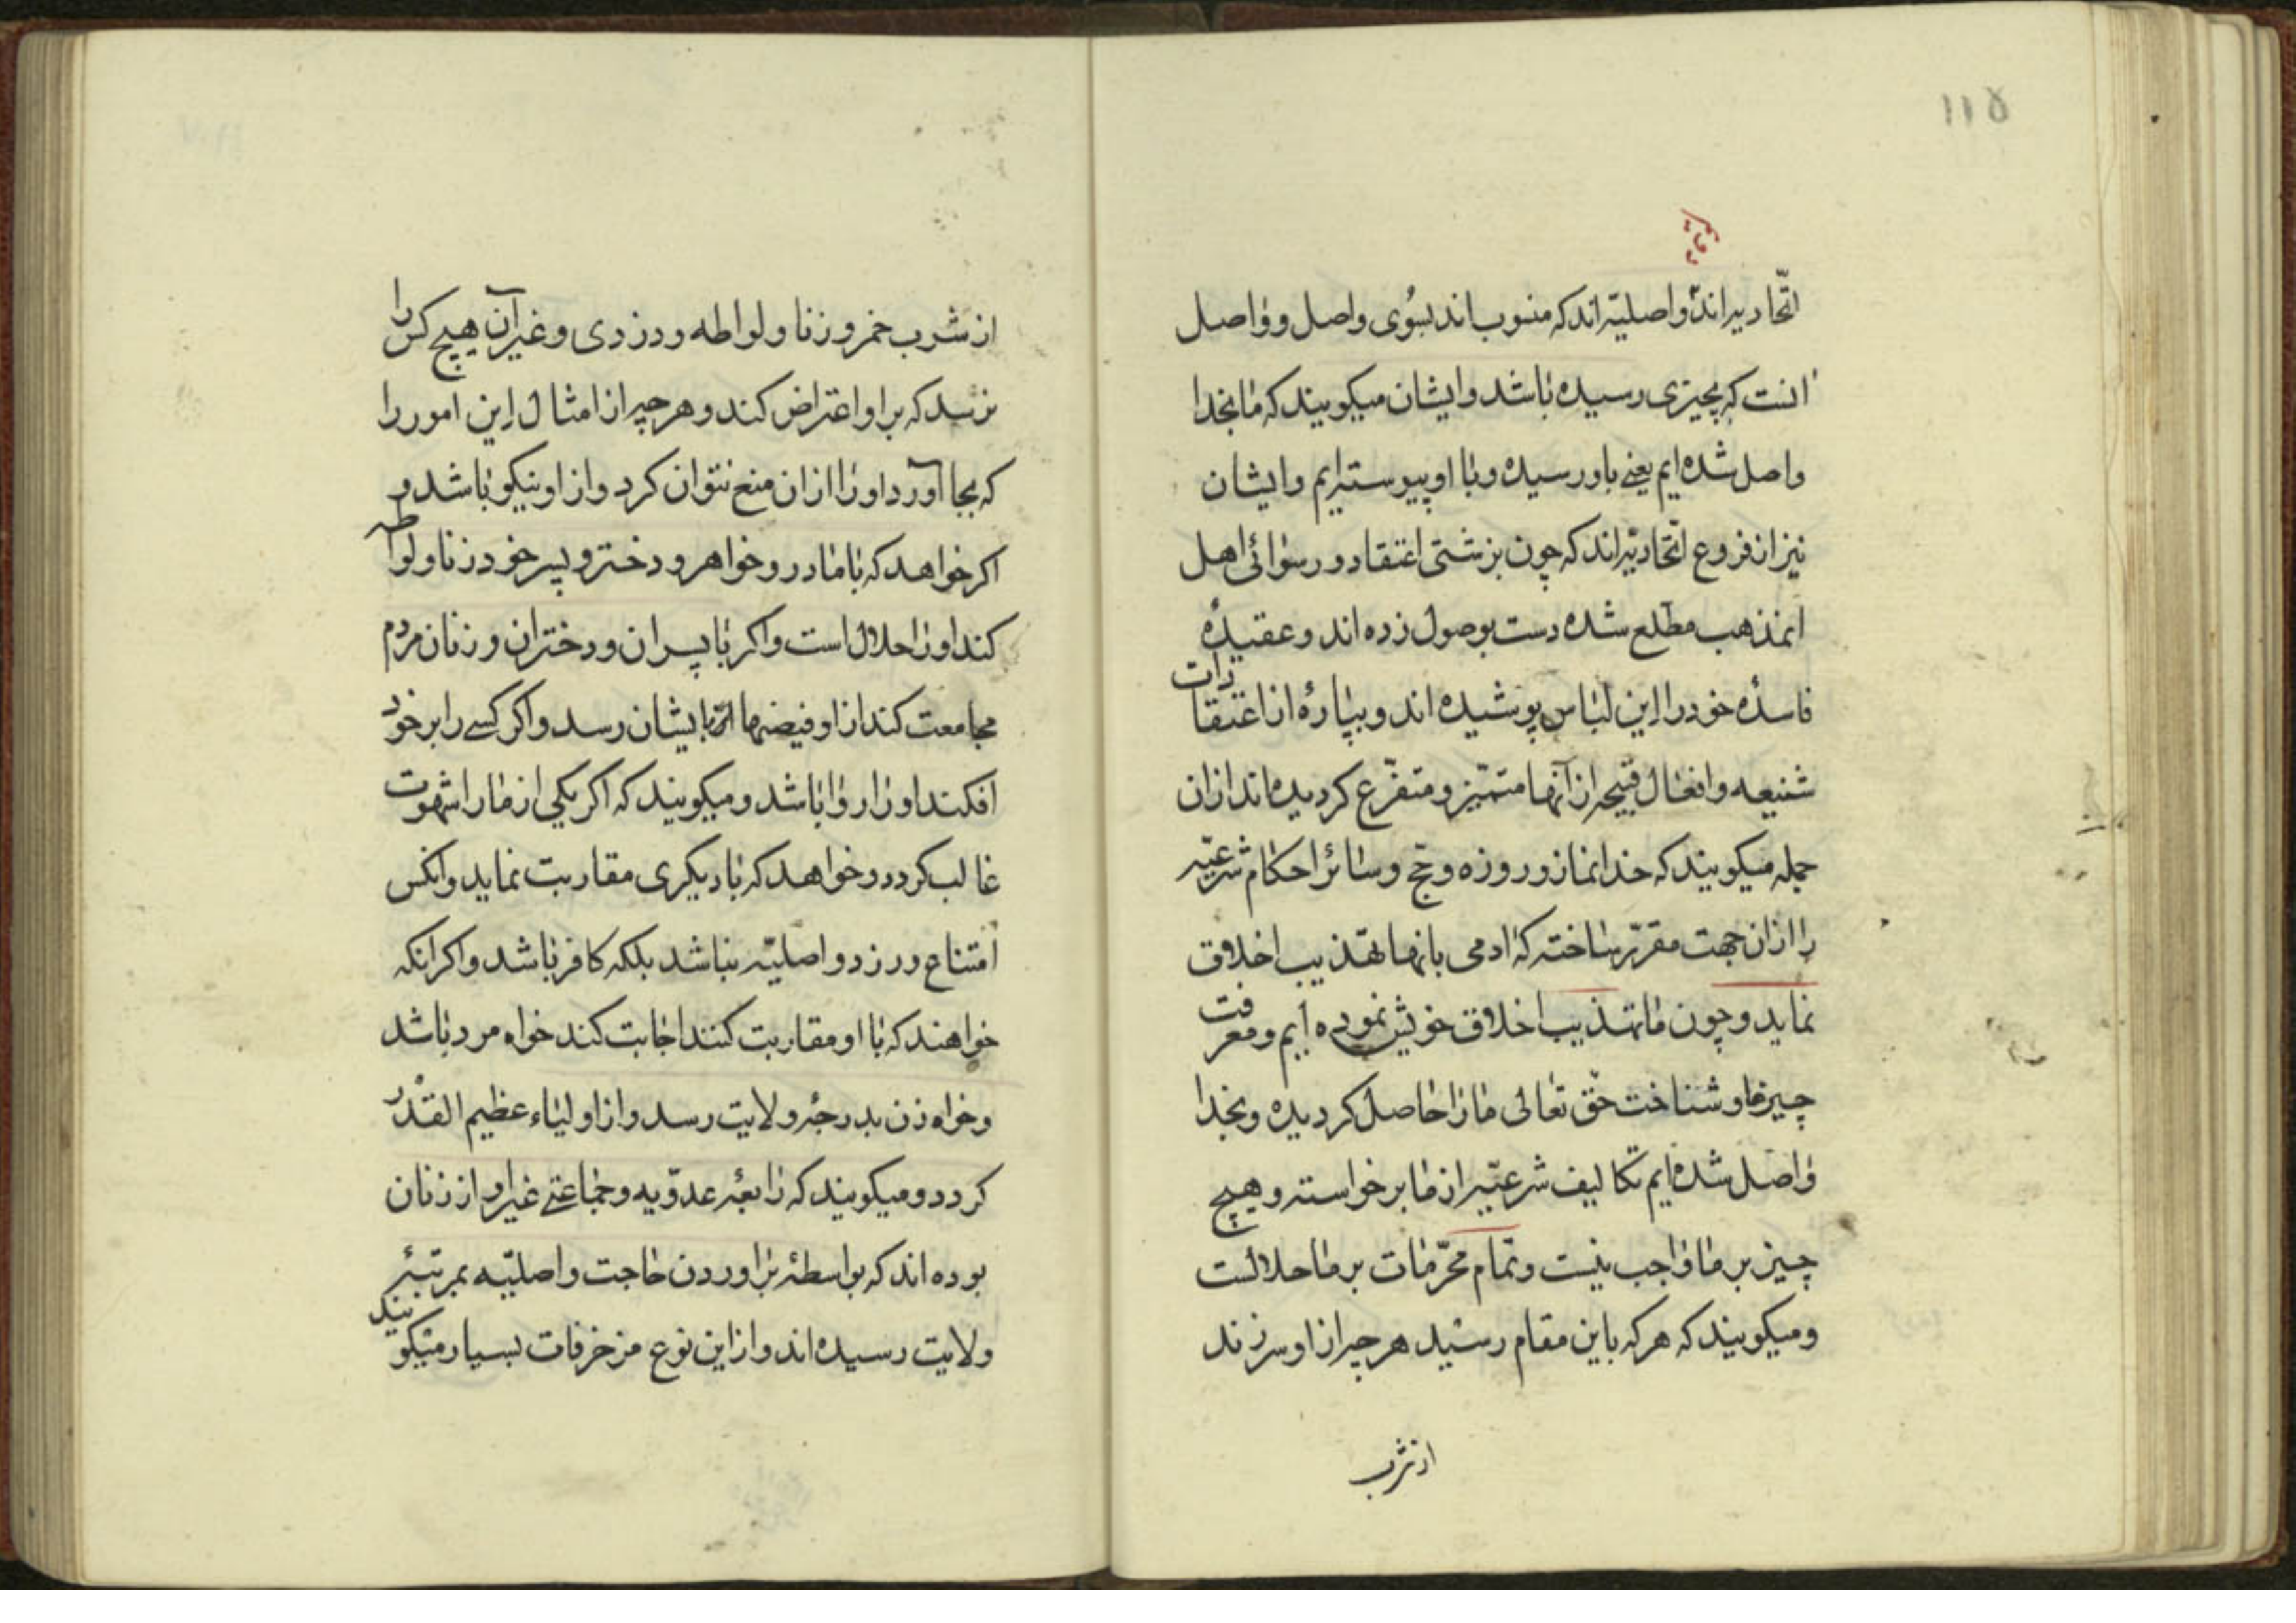 ۱۱۵
دویم
اتّحادیه‌اند واصلیّه‌اند که منسوب‌اند بسوی واصل و واصل
انست که بچیزی رسیده باشد و ایشان میکویند که ما بخدا
واصل شده‌ایم یعنے باو رسیده و با او پیوسته‌ایم و ایشان
نیز از فروع اتّحادیّه‌اند که چون بزشتی اعتقاد و رسوائی اهل
انمذهب مطلع شده دست بوصول زده‌اند و عقیدهٔ
فاسدهٔ خود را این لباس پوشیده‌اند و بپارهٔ از اعتقادات
شنیعه و افعال قبیحه از آنها متمیّز و متفرّع کردیده‌اند ازان
جمله میکویند که خدا نماز و روزه و حج و سائر احکام شرعیّه
را ازان جهت مقرّر ساخته که ادمی بانها تهذیب اخلاق
نماید و چون ما تهذیب اخلاق خویش نموده ایم و معرفت
چیزها و شناخت حق تعالی ما را حاصل کردیده و بخدا
واصل شده‌ایم تکالیف شرعیّه از ما برخواسته و هیچ
چیز بر ما واجب نیست و تمام محرّمات بر ما حلالست
و میکویند که هر که باین مقام رسید هر چه از او سر زند
از شرب
از شرب خمر و زنا و لواطه و دزدی و غیر آن هیچ کس را
نرسد که بر او اعتراض کند و هر چه از امثال این امور را
که بجا آورد او را ازان منع نتوان کرد و از او نیکو باشد و
اکر خواهد که با مادر و خواهر و دختر و پسر خود زنا و لواطه
کند او را حلال است و اکر با پسران و دختران و زنان مردم
مجامعت کند از او فیضها بایشان رسد و اکر کسے را بر خود
افکند او را روا باشد و میکویند که اکر یکی از ما را شهوت
غالب کردد و خواهد که با دیکری مقاربت نماید و انکس
امتناع ورزد واصلیّه نباشد بلکه کافر باشد و اکر انکه
خواهند که با او مقاربت کنند اجابت کند خواه مرد باشد
و خواه زن بدرجهٔ ولایت رسد و از اولیاء عظیم القدر
کردد و میکویند که رابعهٔ عدویه و جماعتے غیر او از زنان
بوده‌اند که بواسطهٔ براوردن حاجت واصلیّه بمرتبهٔ
ولایت رسیده‌اند و از این نوع مزخرفات بسیار میکویند